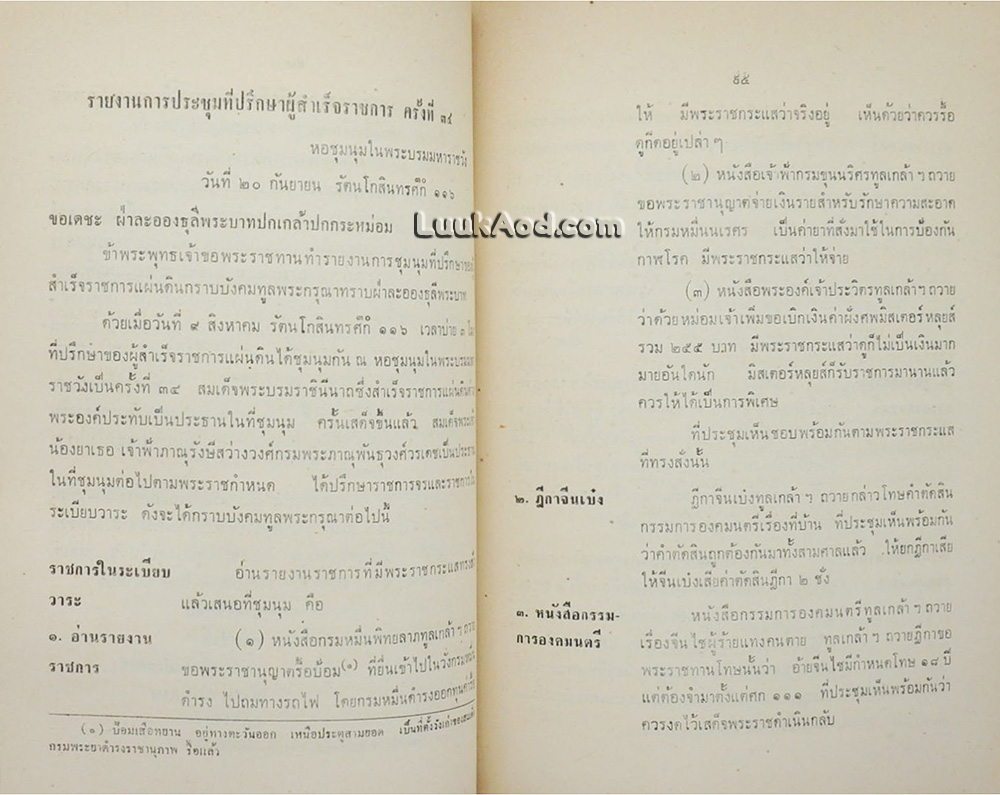 รายงานการประชุมที่ปรึกษาผู้สำเร็จราชการ ครั้งที่ ๓๔
หอชุมนุมในพระบรมมหาราชวัง
วันที่ ๒๐ กันยายน รัตนโกสินทรศก๊ ๑๑๖
ขอเดชะ ฝ่าละอองธุลีพระบาทปกเกล้าปกกระหม่อม
ข้าพระพุทธเจ้าขอพระราชทานทำรายงานการชุมนุมที่ปรึกษาของผู้
สำเร็จราชการแผ่นดินกราบบังคมทูลพระกรุณาทราบฝ่าละอองธุลีพระบาท
ด้วยเมื่อวันที่ ๙ สิงหาคม รัตนโกสินทรศก๊ ๑๑๖ เวลาบ่าย ๓ โมง
ที่ปรึกษาของผู้สำเร็จราชการแผ่นดินได้ชุมนุมกัน ณ หอชุมนุมในพระบรมมหา
ราชวังเป็นครั้งที่ ๓๔ สมเด็จพระบรมราชินีนาถซึ่งสำเร็จราชการแผ่นดินต่าง
พระองค์ประทับเป็นประธานในที่ชุมนุม ครั้นเสด็จขึ้นแล้ว สมเด็จพระเจ้า
น้องยาเธอ เจ้าฟ้าภาณุรังษีสว่างวงศ์กรมพระภาณุพันธุวงศ์วรเดชเป็นประธาน
ในที่ชุมนุมต่อไปตามพระราชกำหนด ได้ปรึกษาราชการจรและราชการใน
ระเบียบวาระ ดังจะได้กราบบังคมทูลพระกรุณาต่อไปนี้
ราชการในระเบียบ อ่านรายงานราชการที่มีพระราชกระแสทรงสั่ง
วาระ แล้วเสนอที่ชุมนุม คือ
๑. อ่านรายงาน (๑) หนังสือกรมหมื่นพิทยลาภทูลเกล้าฯ ถวาย
ราชการ ขอพระราชานุญาตรื้อป้อม(๑) ที่ยื่นเข้าไปในวังกรมหมื่น
ดำรง ไปถมทางรถไฟ โดยกรมหมื่นดำรงออกทุนค่ารื้อ
(๑) ป้อมเสือทยาน อยู่ทางตะวันออก เหนือประตูสามยอด เป็นที่ตั้งวังเก่าของสมเด็จ
กรมพระยาดำรงราชานุภาพ รื้อแล้ว
๕๕
ให้ มีพระราชกระแสว่าจริงอยู่ เห็นด้วยว่าควรรื้อ
ดูก็คอยู่เปล่า ๆ
(๒) หนังสือเจ้าฟ้ากรมขุนนริศรทูลเกล้า ฯ ถวาย
ขอพระราชานุญาตจ่ายเงินรายสำหรับรักษาความสะอาด
ให้กรมหมื่นนเรศร เป็นค่ายาที่สั่งมาใช้ในการป้องกัน
กาฬโรค มีพระราชกระแสว่าให้จ่าย
(๓) หนังสือพระองค์เจ้าประวิตรทูลเกล้า ฯ ถวาย
ว่าด้วยหม่อมเจ้าเพิ่มขอเบิกเงินค่าฝังศพมิสเตอร์หลุยส์
รวม ๒๕๕ บาท มีพระราชกระแสว่าดูก็ไม่เป็นเงินมาก
มายอันใดนัก มิสเตอร์หลุยส์ก็รับราชการมานานแล้ว
ควรให้ได้เป็นการพิเศษ
ที่ประชุมเห็นชอบพร้อมกันตามพระราชกระแส
ที่ทรงสั่งนั้น
๒. ฎีกาจีนเบ๋ง ฎีกาจีนเบ๋งทูลเกล้า ฯ ถวายกล่าวโทษคำตัดสิน
กรรมการองคมนตรีเรื่องที่บ้าน ที่ประชุมเห็นพร้อมกัน
ว่าคำตัดสินถูกต้องกันมาทั้งสามศาลแล้ว ให้ยกฎีกาเสีย
ให้จีนเบ๋งเสียค่าตัดสินฎีกา ๒ ชั่ง
๓. หนังสือกรรม- หนังสือกรรมการองคมนตรีทูลเกล้า ฯ ถวาย
การองคมนตรี เรื่องจีนไซผู้ร้ายแทงคนตาย ทูลเกล้า ฯ ถวายฎีกาขอ
พระราชทานโทษนั้นว่า อ้ายจีนไซมีกำหนดโทษ ๑๘ ปี
แต่ต้องจำมาตั้งแต่ศก ๑๑๑ ที่ประชุมเห็นพร้อมกันว่า
ควรงดไว้เสด็จพระราชดำเนินกลับ
LuukAod.com